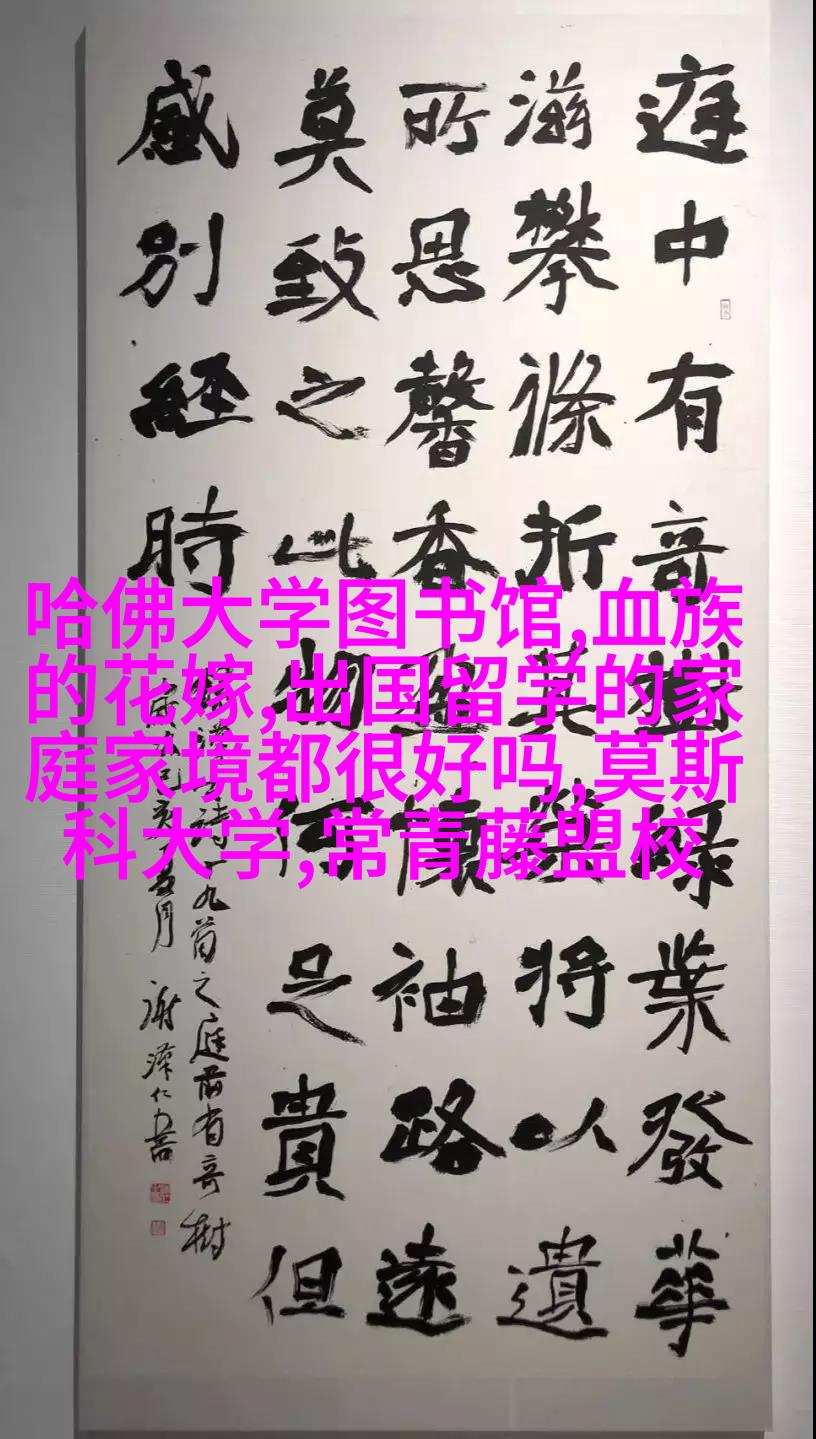 庭中有奇樹綠葉發華
滋攀條折其榮將以遺
所思馨香盈懷袖路遠
莫致之此物何足貴但
感別經時
九首之庭前有奇樹
月 謝澤仁書
哈佛大学图书馆,血族
的花嫁,出国留学的家
庭家境都很好吗,莫斯
科大学,常青藤盟校